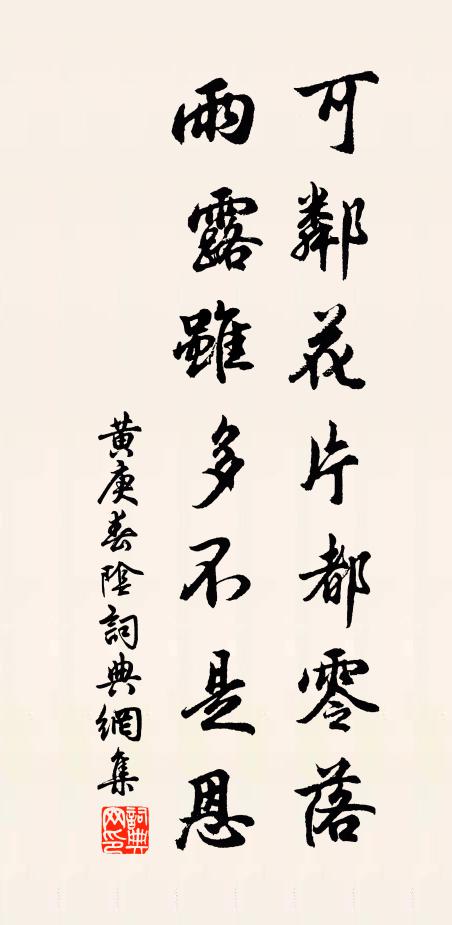 可鄰花片都零落
雨露雖多不是恩
黃庚春陰詞典網集
詞典網印